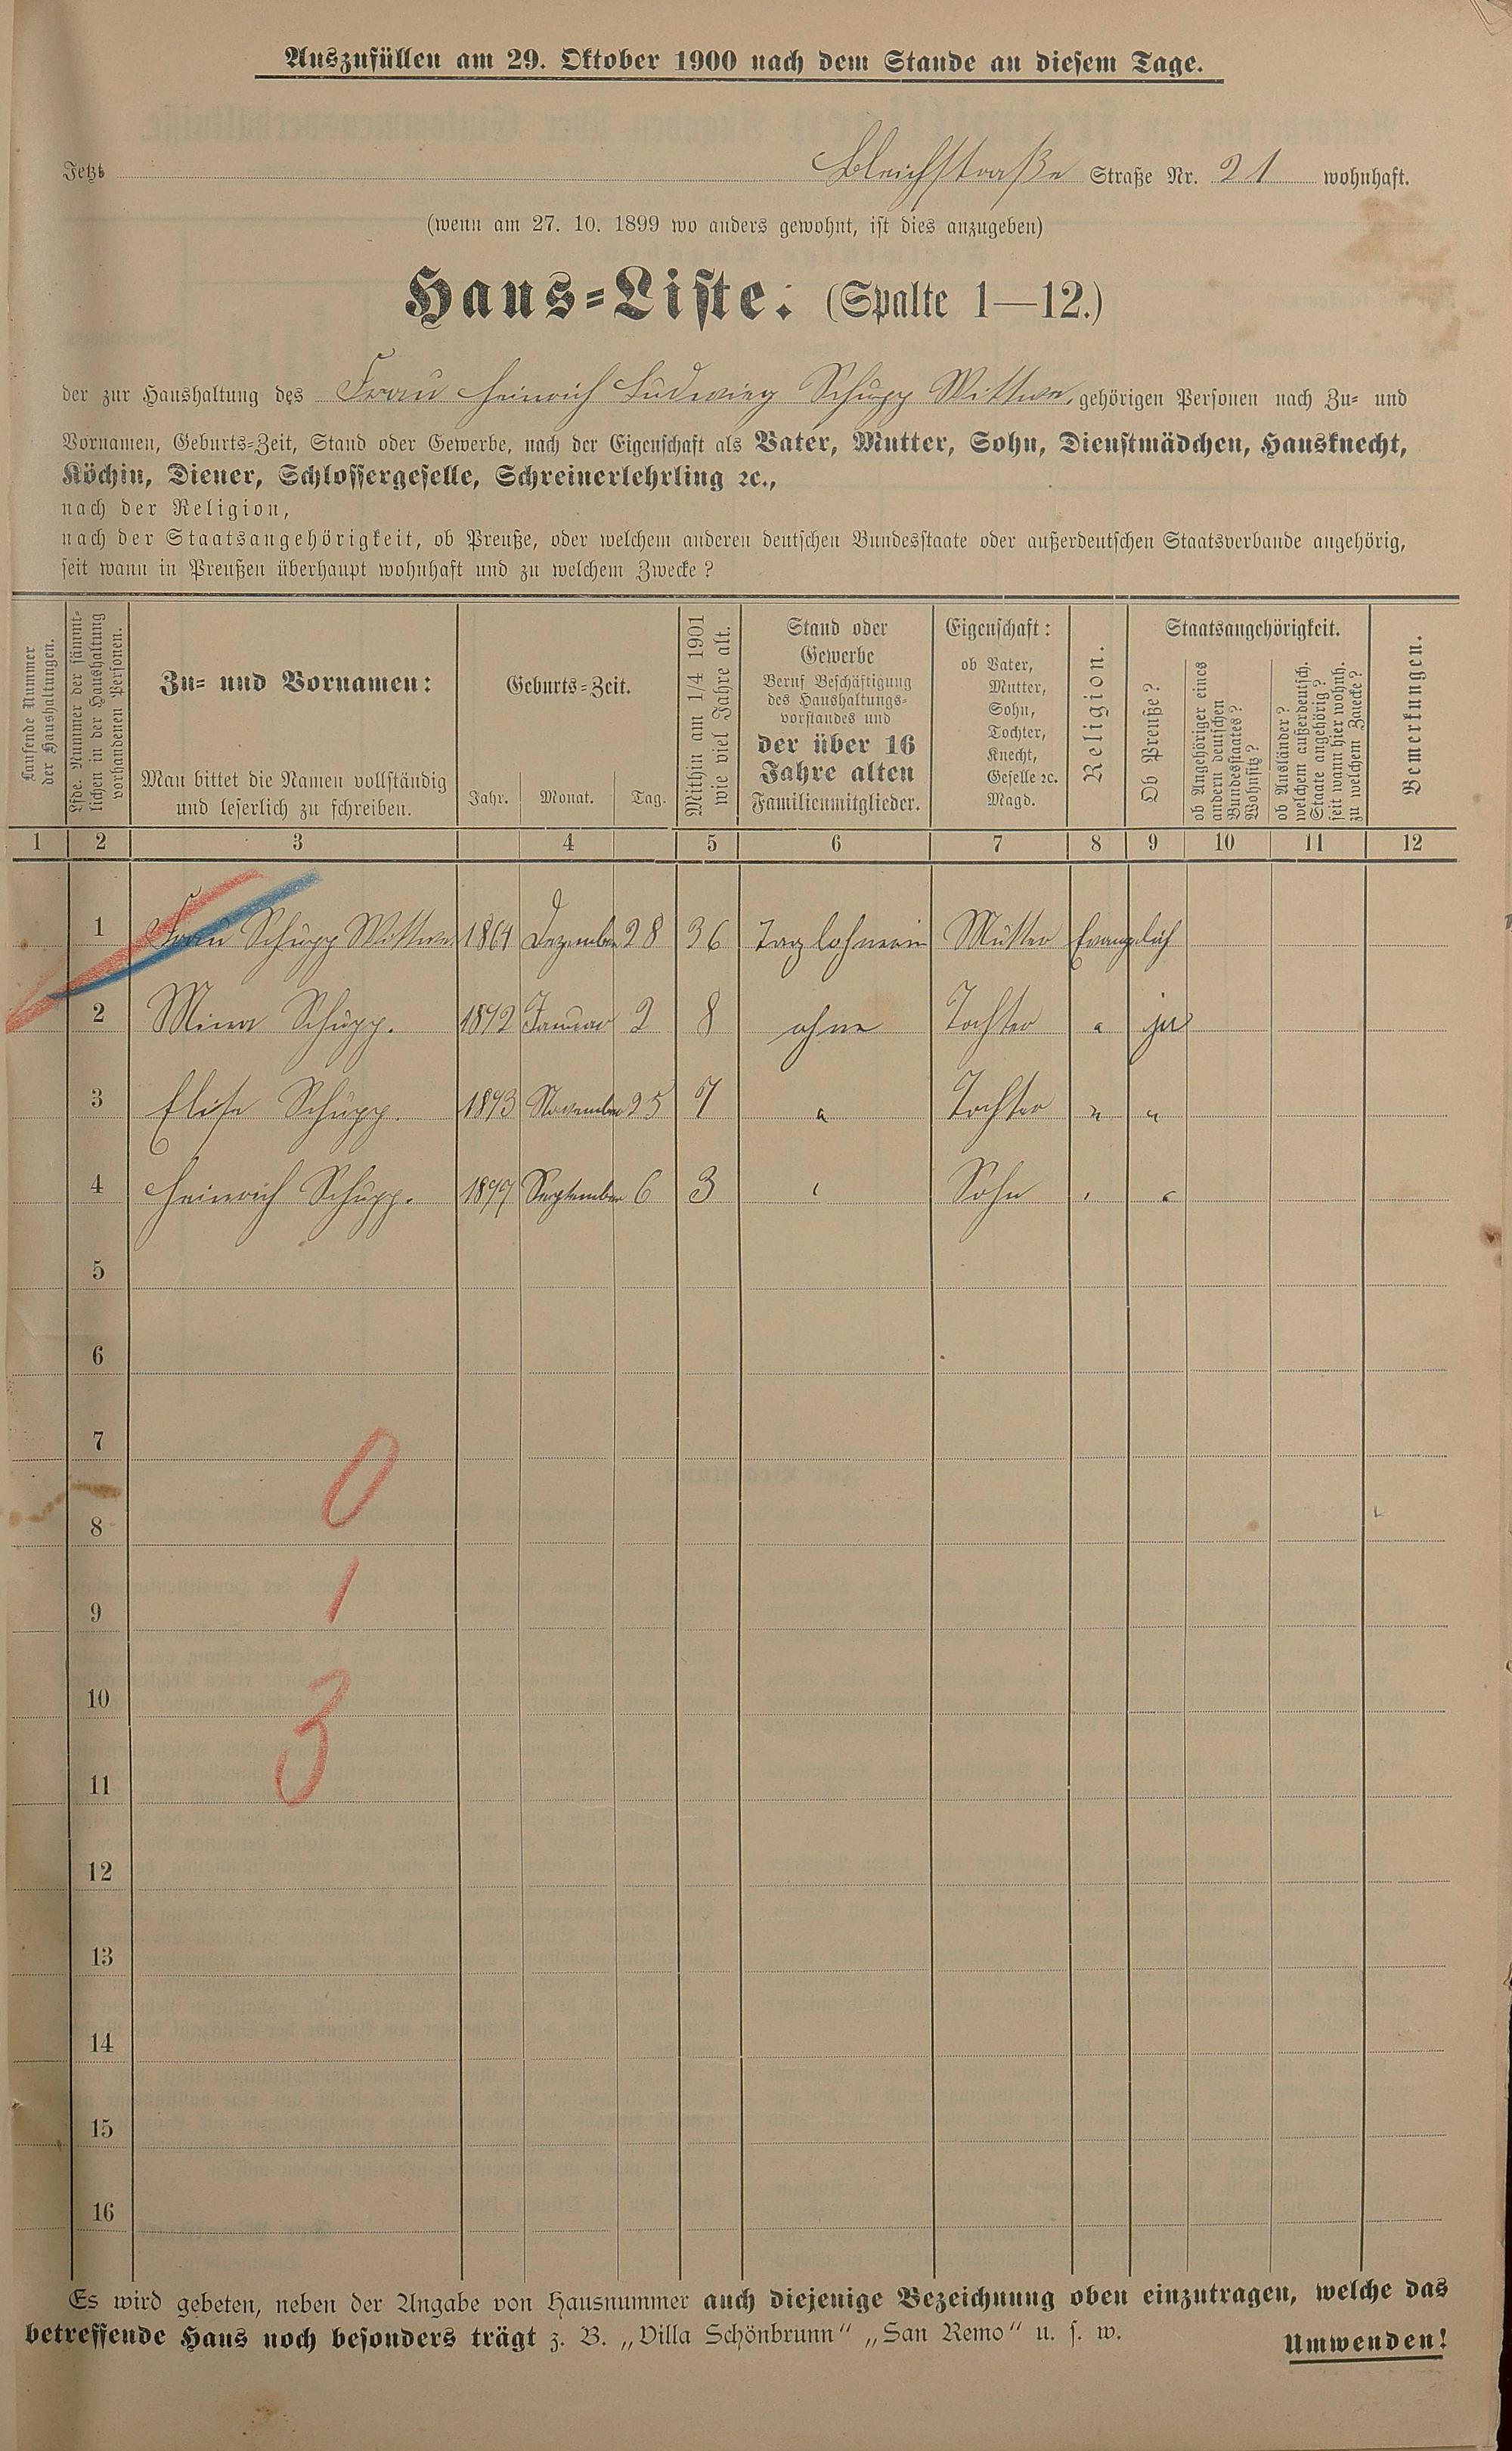 Auszufüllen am 29. Oktober 1900 nach dem Stande an diesem Tage.
Jetzt Bleichstraße Straße Nr. 21 wohnhaft.
(wenn am 27. 10. 1899 wo anders gewohnt, ist dies anzugeben)
Haus=Liste: (Spalte 1—12.)
der zur Haushaltung des Frau Heinrich Ludwieg Schupp Wittwe, gehörigen Personen nach Zu= und
Vornamen, Geburts=Zeit, Stand oder Gewerbe, nach der Eigenschaft als Vater, Mutter, Sohn, Dienstmädchen, Hausknecht,
Köchin, Diener, Schlossergeselle, Schreinerlehrling ꝛc.,
nach der Religion,
nach der Staatsangehörigkeit, ob Preuße, oder welchem anderen deutschen Bundesstaate oder außerdeutschen Staatsverbande angehörig,
seit wann in Preußen überhaupt wohnhaft und zu welchem Zwecke?
Laufende Nummer
der Haushaltungen.
Lfde. Nummer der sämmt-
lichen in der Haushaltung
vorhandenen Personen.
Zu= und Vornamen:
Man bittet die Namen vollständig
und leserlich zu schreiben.
Geburts=Zeit.
Jahr. Monat. Tag.
Mithin am 1/4 1901
wie viel Jahre alt.
Stand oder
Gewerbe
Beruf Beschäftigung
des Haushaltungs=
vorstandes und
der über 16
Jahre alten
Familienmitglieder.
Eigenschaft:
ob Vater,
Mutter,
Sohn,
Tochter,
Knecht,
Geselle ꝛc.
Magd.
Religion.
Staatsangehörigkeit.
Ob Preuße?
ob Angehöriger eines
andern deutschen
Bundesstaates?
Wohnsitz?
ob Ausländer?
welchem außerdeutsch.
Staate angehörig?
seit wann hier wohnh.
zu welchem Zwecke?
Bemerkungen.
1 2 3 4 5 6 7 8 9 10 11 12
1 Frau Schupp Wittwe 1864 Dezember 28 36 Taglohnerin Mutter Evangelich
2 Mina Schupp. 1892 Januar 2 8 ohne Tochter " ja
3 Elise Schupp. 1893 November 25 7 " Tochter " "
4 Heinrich Schupp. 1897 September 6 3 " Sohn " "
5
6
7
0
8
9
1
10
3
11
12
13
14
15
16
Es wird gebeten, neben der Angabe von Hausnummer auch diejenige Bezeichnung oben einzutragen, welche das
betreffende Haus noch besonders trägt z. B. „Villa Schönbrunn“ „San Remo“ u. s. w.
Umwenden!